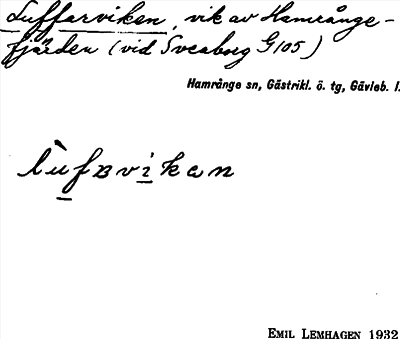 Luffarviken, vik av Hamrånge-
fjärden (vid Sveaborg G 105)
Hamrånge sn, Gästrikl. ö. tg, Gävleb. l.
lùfavikan
EMIL LEMHAGEN 1932